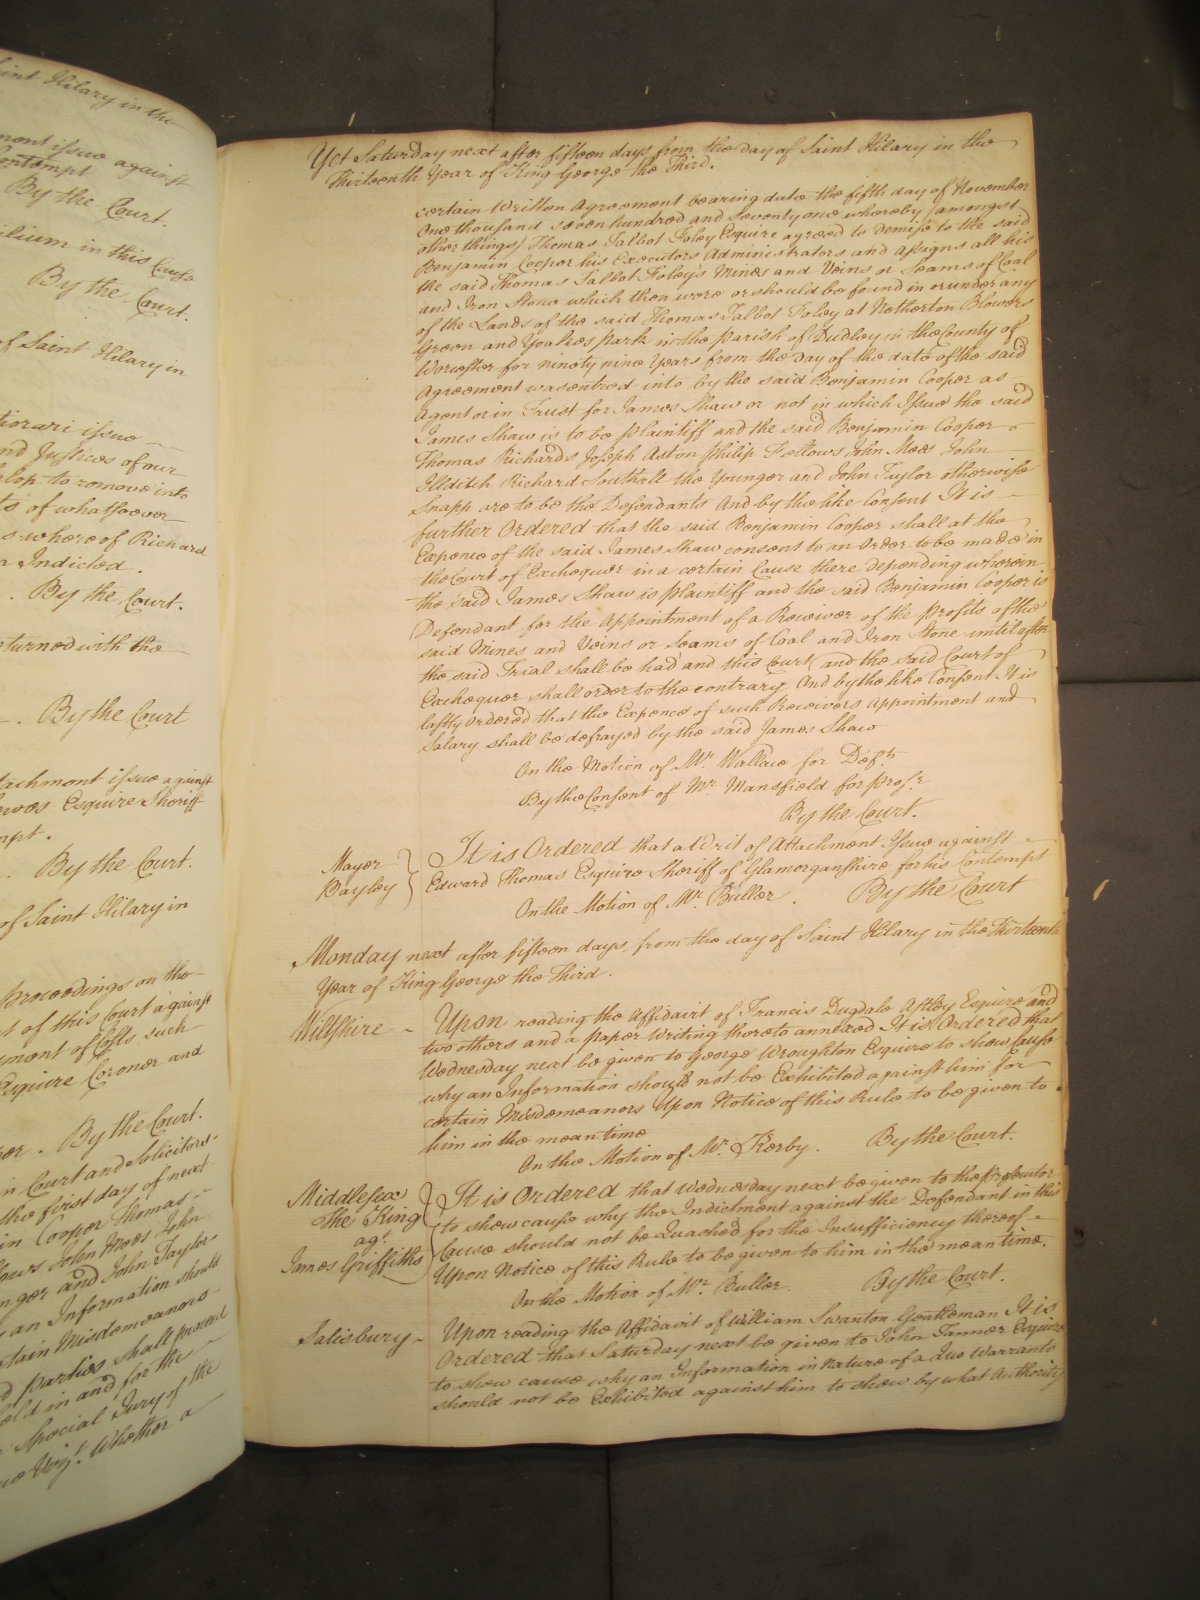 Saint Hilary in the
issue against
Contempt
By the Court.
in this Cause
By the Court.
of Saint Hilary in
Certiorari issue
and Justices of our
to remove into
of whatsoever
whereof Richard
Indicted.
By the Court.
returned with the
By the Court
Attachment issue against
Esquire Sheriff
Contempt.
By the Court.
of Saint Hilary in
Proceedings on the
of this Court against
of Costs such
Esquire Coroner and
By the Court.
in Court and Solicitors
the first day of next
Cooper Thomas
John Mees John
and John Taylor
an Information should
certain Misdemeanors
parties shall proceed
in and for the
Special Jury of the
Whether a
Yet Saturday next after fifteen days from the day of Saint Hilary in the
Thirteenth Year of King George the Third.
certain Written Agreement bearing date the fifth day of November
One thousand seven hundred and Seventy one whereby (amongst
other things) Thomas Talbot Foley Esquire agreed to demise to the said
Benjamin Cooper his Executors Administrators and Assigns all his
the said Thomas Talbot Foley's Mines and Veins or Seams of Coal
and Iron Stone which then were or should be found in or under any
of the Lands of the said Thomas Talbot Foley at Netherton Blowers
Green and Yoakes park in the parish of Dudley in the County of
Worcester for ninety nine Years from the day of the date of the said
Agreement was entred into by the said Benjamin Cooper as
Agent or in Trust for James Shaw or not in which Issue the said
James Shaw is to be plaintiff and the said Benjamin Cooper
Thomas Richards Joseph Aston philip Fellows John Mees John
Illditch Richard Southall the Younger and John Taylor otherwise
Snapp are to be the Defendants And by the like Consent It is
further Ordered that the said Benjamin Cooper shall at the
Expence of the said James Shaw consent to an Order to be made in
the Court of Exchequer in a certain Cause there depending wherein
the said James Shaw is plaintiff and the said Benjamin Cooper is
Defendant for the Appointment of a Receiver of the profits of the
said Mines and Veins or Seams of Coal and Iron Stone until after
the said Trial shall be had and this Court and the said Court of
Exchequer shall order to the contrary And by the like Consent It is
lastly Ordered that the Expence of such Receivers Appointment and
Salary shall be defrayed by the said James Shaw
On the Motion of Mr. Wallace for Def.ts
By the Consent of Mr. Mansfield for pros.r
By the Court.
Mayer
Bayley
It is Ordered that a Writ of Attachment Issue against
Edward Thomas Esquire Sheriff of Glamorganshire for his Contempt
On the Motion of Mr. Buller. By the Court
Monday next after fifteen days from the day of Saint Hilary in the Thirteenth
Year of King George the Third.
Wiltshire
Upon reading the Affidavit of Francis Dugdale Astley Esquire and
two others and a paper Writing thereto annexed It is Ordered that
Wednesday next be given to George Wroughton Esquire to show Cause
why an Information should not be Exhibited against him for
certain Misdemeanors Upon Notice of this Rule to be given to
him in the mean time
On the Motion of Mr. Kerby. By the Court.
Middlesex
The King
ag.t
James Griffiths
It is Ordered that Wednesday next be given to the prosecutor
to show cause why the Indictment against the Defendant in this
Cause should not be Quashed for the Insufficiency thereof
Upon Notice of this Rule to be given to him in the mean time.
On the Motion of Mr. Buller. By the Court.
Salisbury
Upon reading the Affidavit of William Swanton Gentleman It is
Ordered that Saturday next be given to John Tanner Esquire
to show cause why an Information in Nature of a Quo Warranto
should not be Exhibited against him to show by what Authority